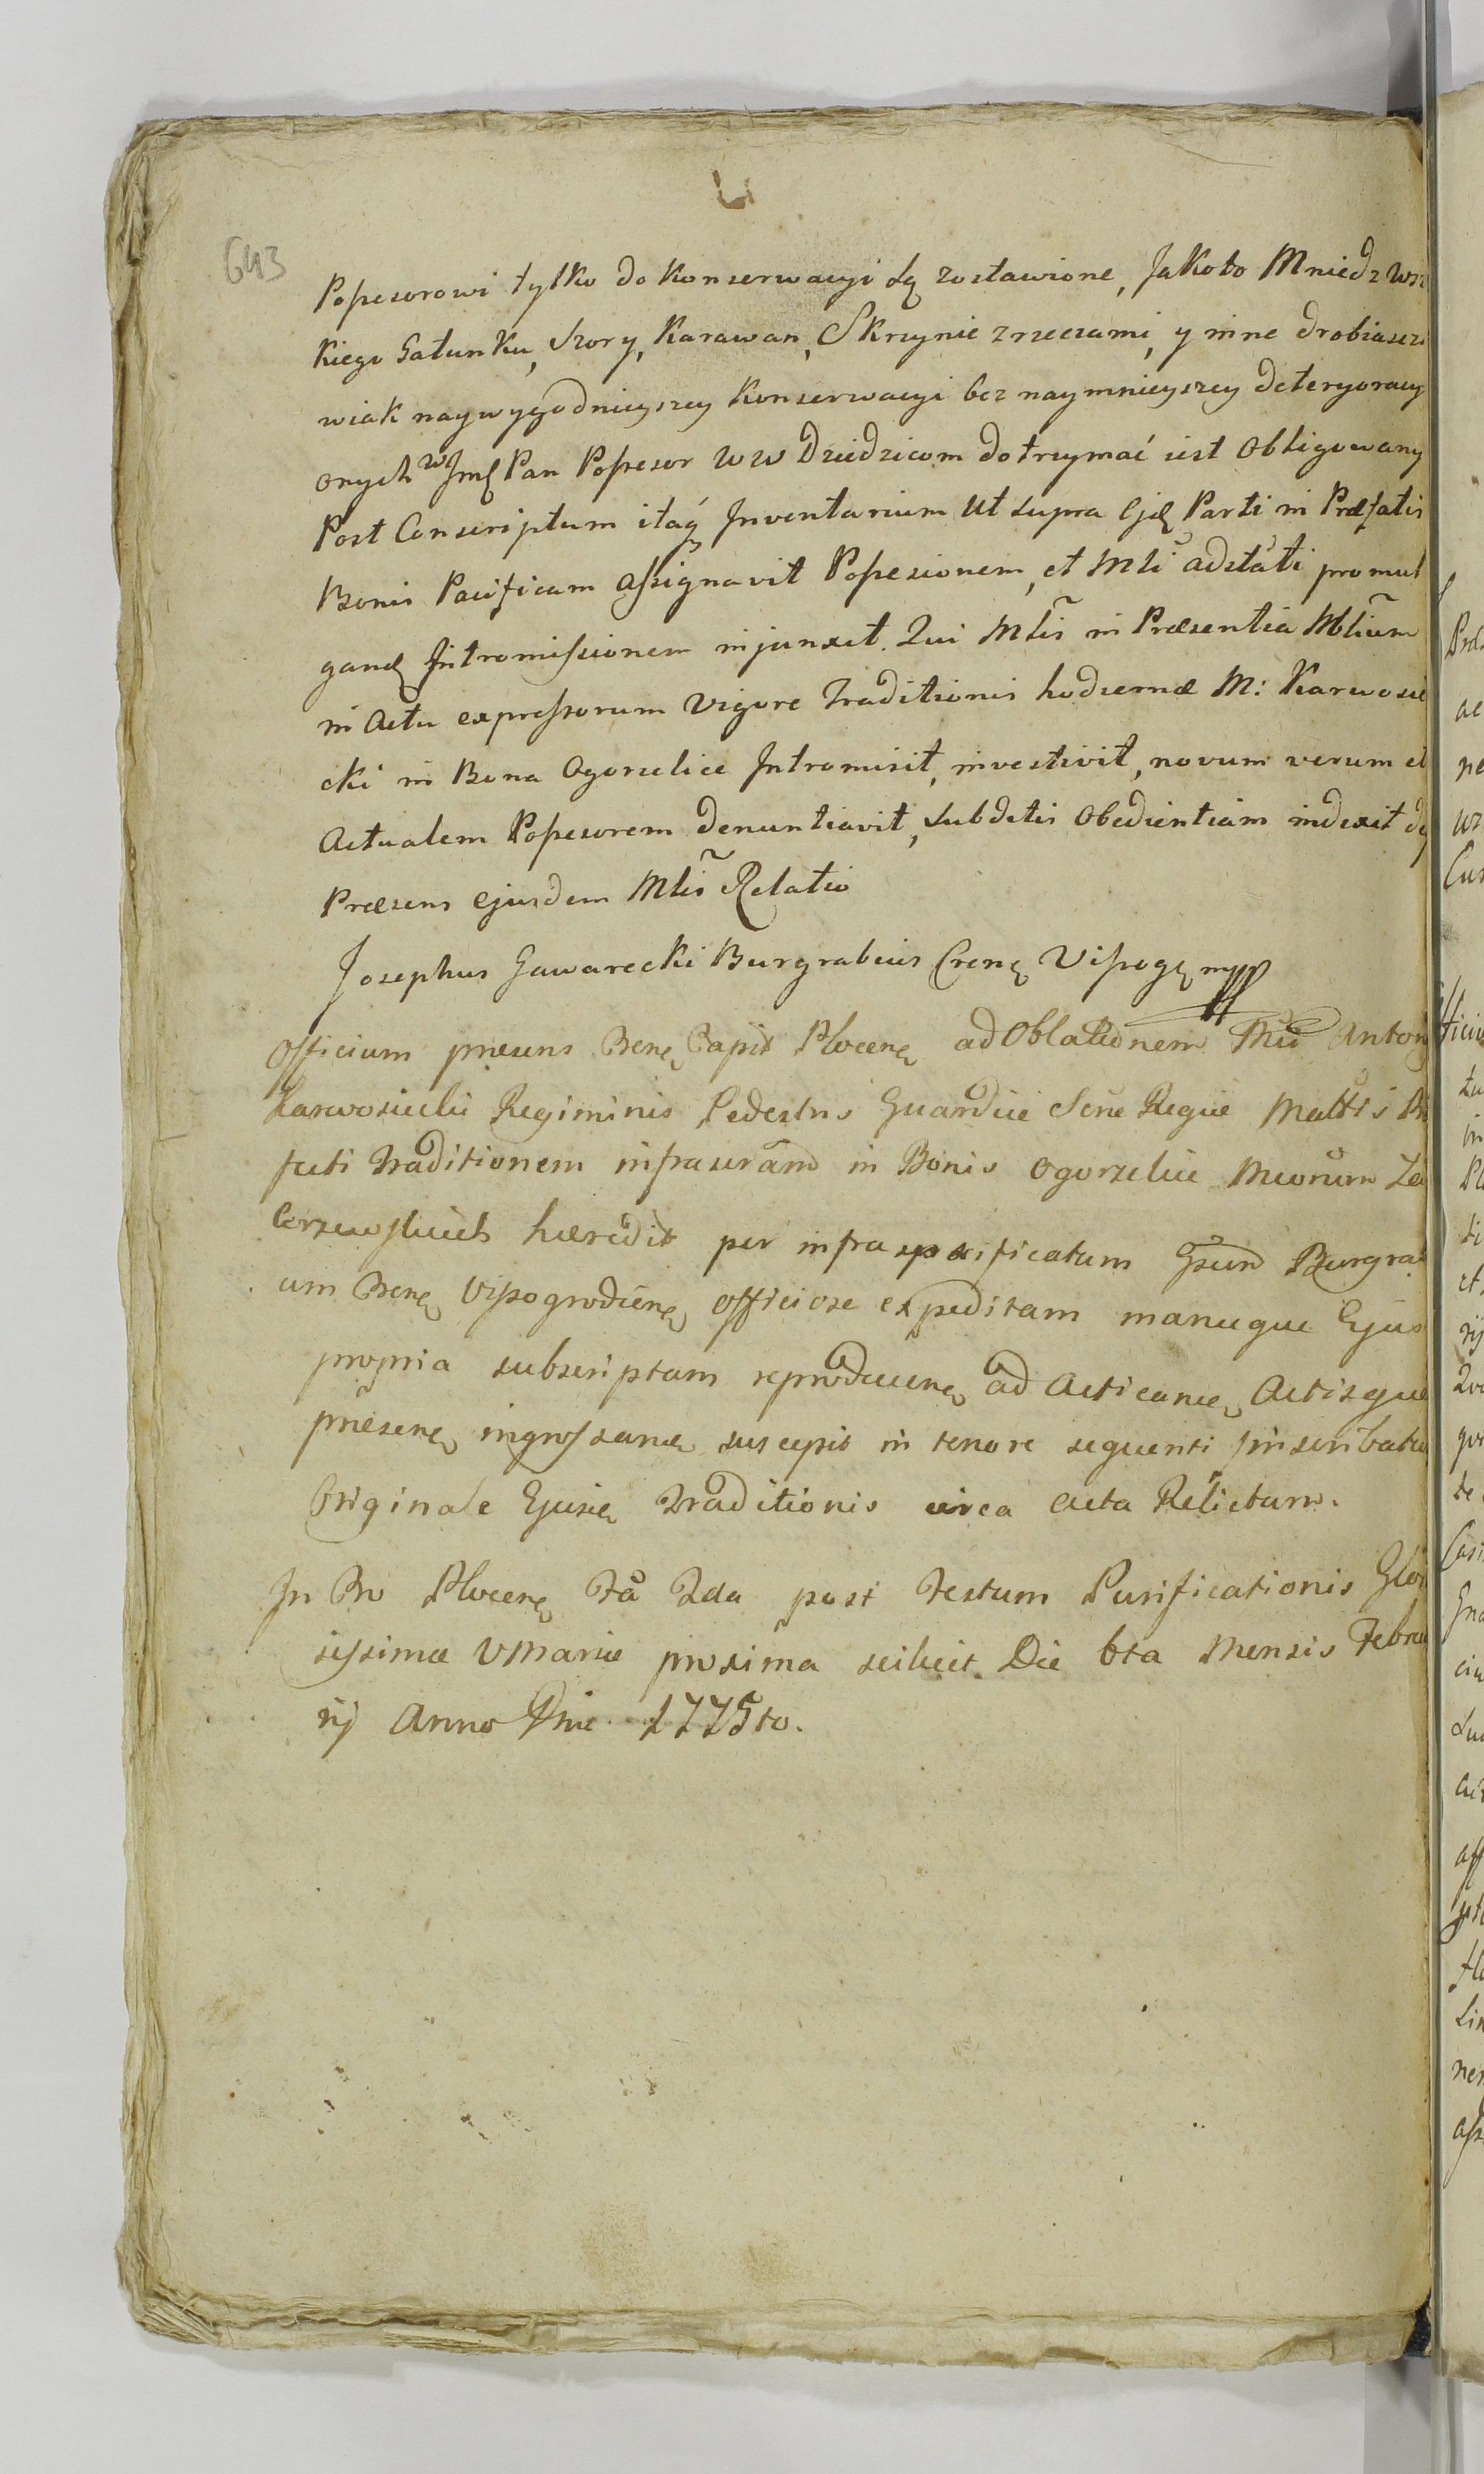 643
Possesorowi tylko do Konserwacyi są zostawione, Jakoto Mniedz wsz
Kiego Gatunku, Szory, Karawan, Skrzynie z rzeczami, y inne drobiazgi
wiak naywygodnieyszey Konserwacyi bez naymnieyszey deteryoracy
onych w Jmć Pan Possesor WW Dziedzicom dotrzymać iest Obligowany
Post Conscriptum itaq Inventarium Ut supra Ejd Parti in Præfatis
Bonis Pacificam assignavit Possesionem, et Mli adstati promul
gand Intromissionem injunxit. Qui Mlis in Præsentia Mblium
in Actu expressorum vigore Traditionis hodiernæ M: Karwosie
cki in Bona Ogorzelice Intromisit, investivit, novum verum et
Actualem Possesorem denuntiavit, Subditis Obedientiam indixit
Præsens ejusdem Mlis Relatio
Josephus Gawarecki Burgrabius Cren Vissog mpp
Officium præsens Cap Plocen ad Oblationem Anton
Karwosiecki Regiminis Pedestris Guardiæ Sern Regiæ Mattis
fecti Traditionem infrascram in Bonis Ogorzelice
hæredit per infraspecificatum Burgra
um Vissogrodien officiose expeditam manuque Ejus
propria subscriptam reproducen ad Acticand Actisque
præsen ingrossand suscepit in tenore sequenti inscribatur
Originale Ejusd Traditionis circa acta Relictum.
In Plocen Fa 2da post Festum Purificationis Glor
sissimæ VMariæ proxima scilicet Die 6ta Mensis Febru
rij Anno Dni 1775to.